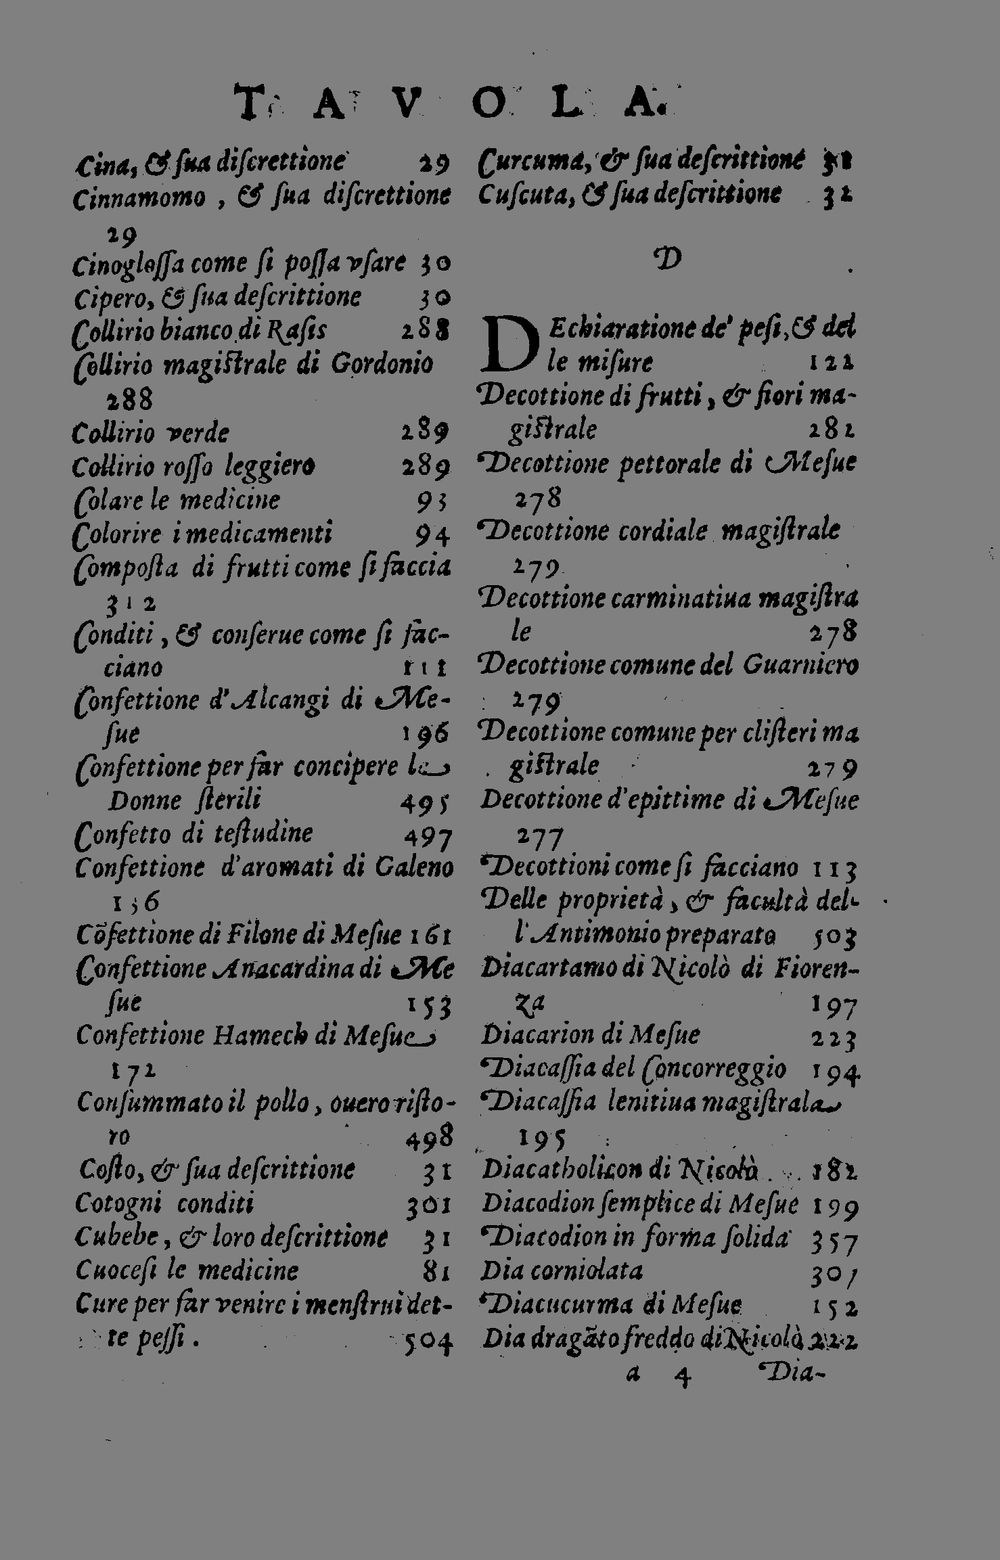 TAVOLA.
Cina, & ſua diſcrettione 29
Cinnamomo , & ſua diſcrettione
29
Cinogloſſa come ſi poſſa vſare 30
Cipero, & ſua deſcrittione 30
Collirio bianco di Raſis 288
Collirio magiſtrale di Gordonio
288
Collirio verde 289
Collirio roſſo leggiero 289
Colare le medicine 93
Colorire i medicamenti 94
Compoſta di frutti come ſi faccia
312
Conditi , & conſerue come ſi fac-
ciano 111
Confettione d'Alcangi di Me-
ſue 196
Confettione per far concipere le
Donne ſterili 495
Confetto di teſtudine 497
Confettione d'aromati di Galeno
136
Cõfettione di Filone di Meſue 161
Confettione Anacardina di Me
ſue 153
Confettione Hamech di Meſue
172
Conſummato il pollo , ouero riſto-
ro 498
Coſto, & ſua deſcrittione 31
Cotogni conditi 301
Cubebe , & loro deſcrittione 31
Cuoceſi le medicine 81
Cure per far venire i menſtrui det-
te peſſi . 504
Curcuma, & ſua deſcrittione 31
Cuſcuta, & ſua deſcrittione 32
D
DEchiaratione de' peſi, & del
le miſure 122
Decottione di frutti , & fiori ma-
giſtrale 282
Decottione pettorale di Meſue
278
Decottione cordiale magiſtrale
279
Decottione carminatiua magiſtra
le 278
Decottione comune del Guarniero
279
Decottione comune per cliſteri ma
giſtrale 279
Decottione d'epittime di Meſue
277
Decottioni come ſi facciano 113
Delle proprietà , & facultà del-
l'Antimonio preparato 503
Diacartamo di Nicolò di Fioren-
za 197
Diacarion di Meſue 223
Diacaſſia del Concorreggio 194
Diacaſſia lenitiua magiſtrale
195
Diacatholicon di Nicolò 182
Diacodion ſemplice di Meſue 199
Diacodion in forma ſolida 357
Dia corniolata 307
Diacucurma di Meſue 152
Dia dragãto freddo di Nicolò 222
a 4 Dia-